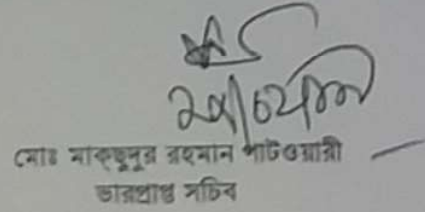 মোঃ মাকছুদুর রহমান পাটওয়ারী
ভারপ্রাপ্ত সচিব